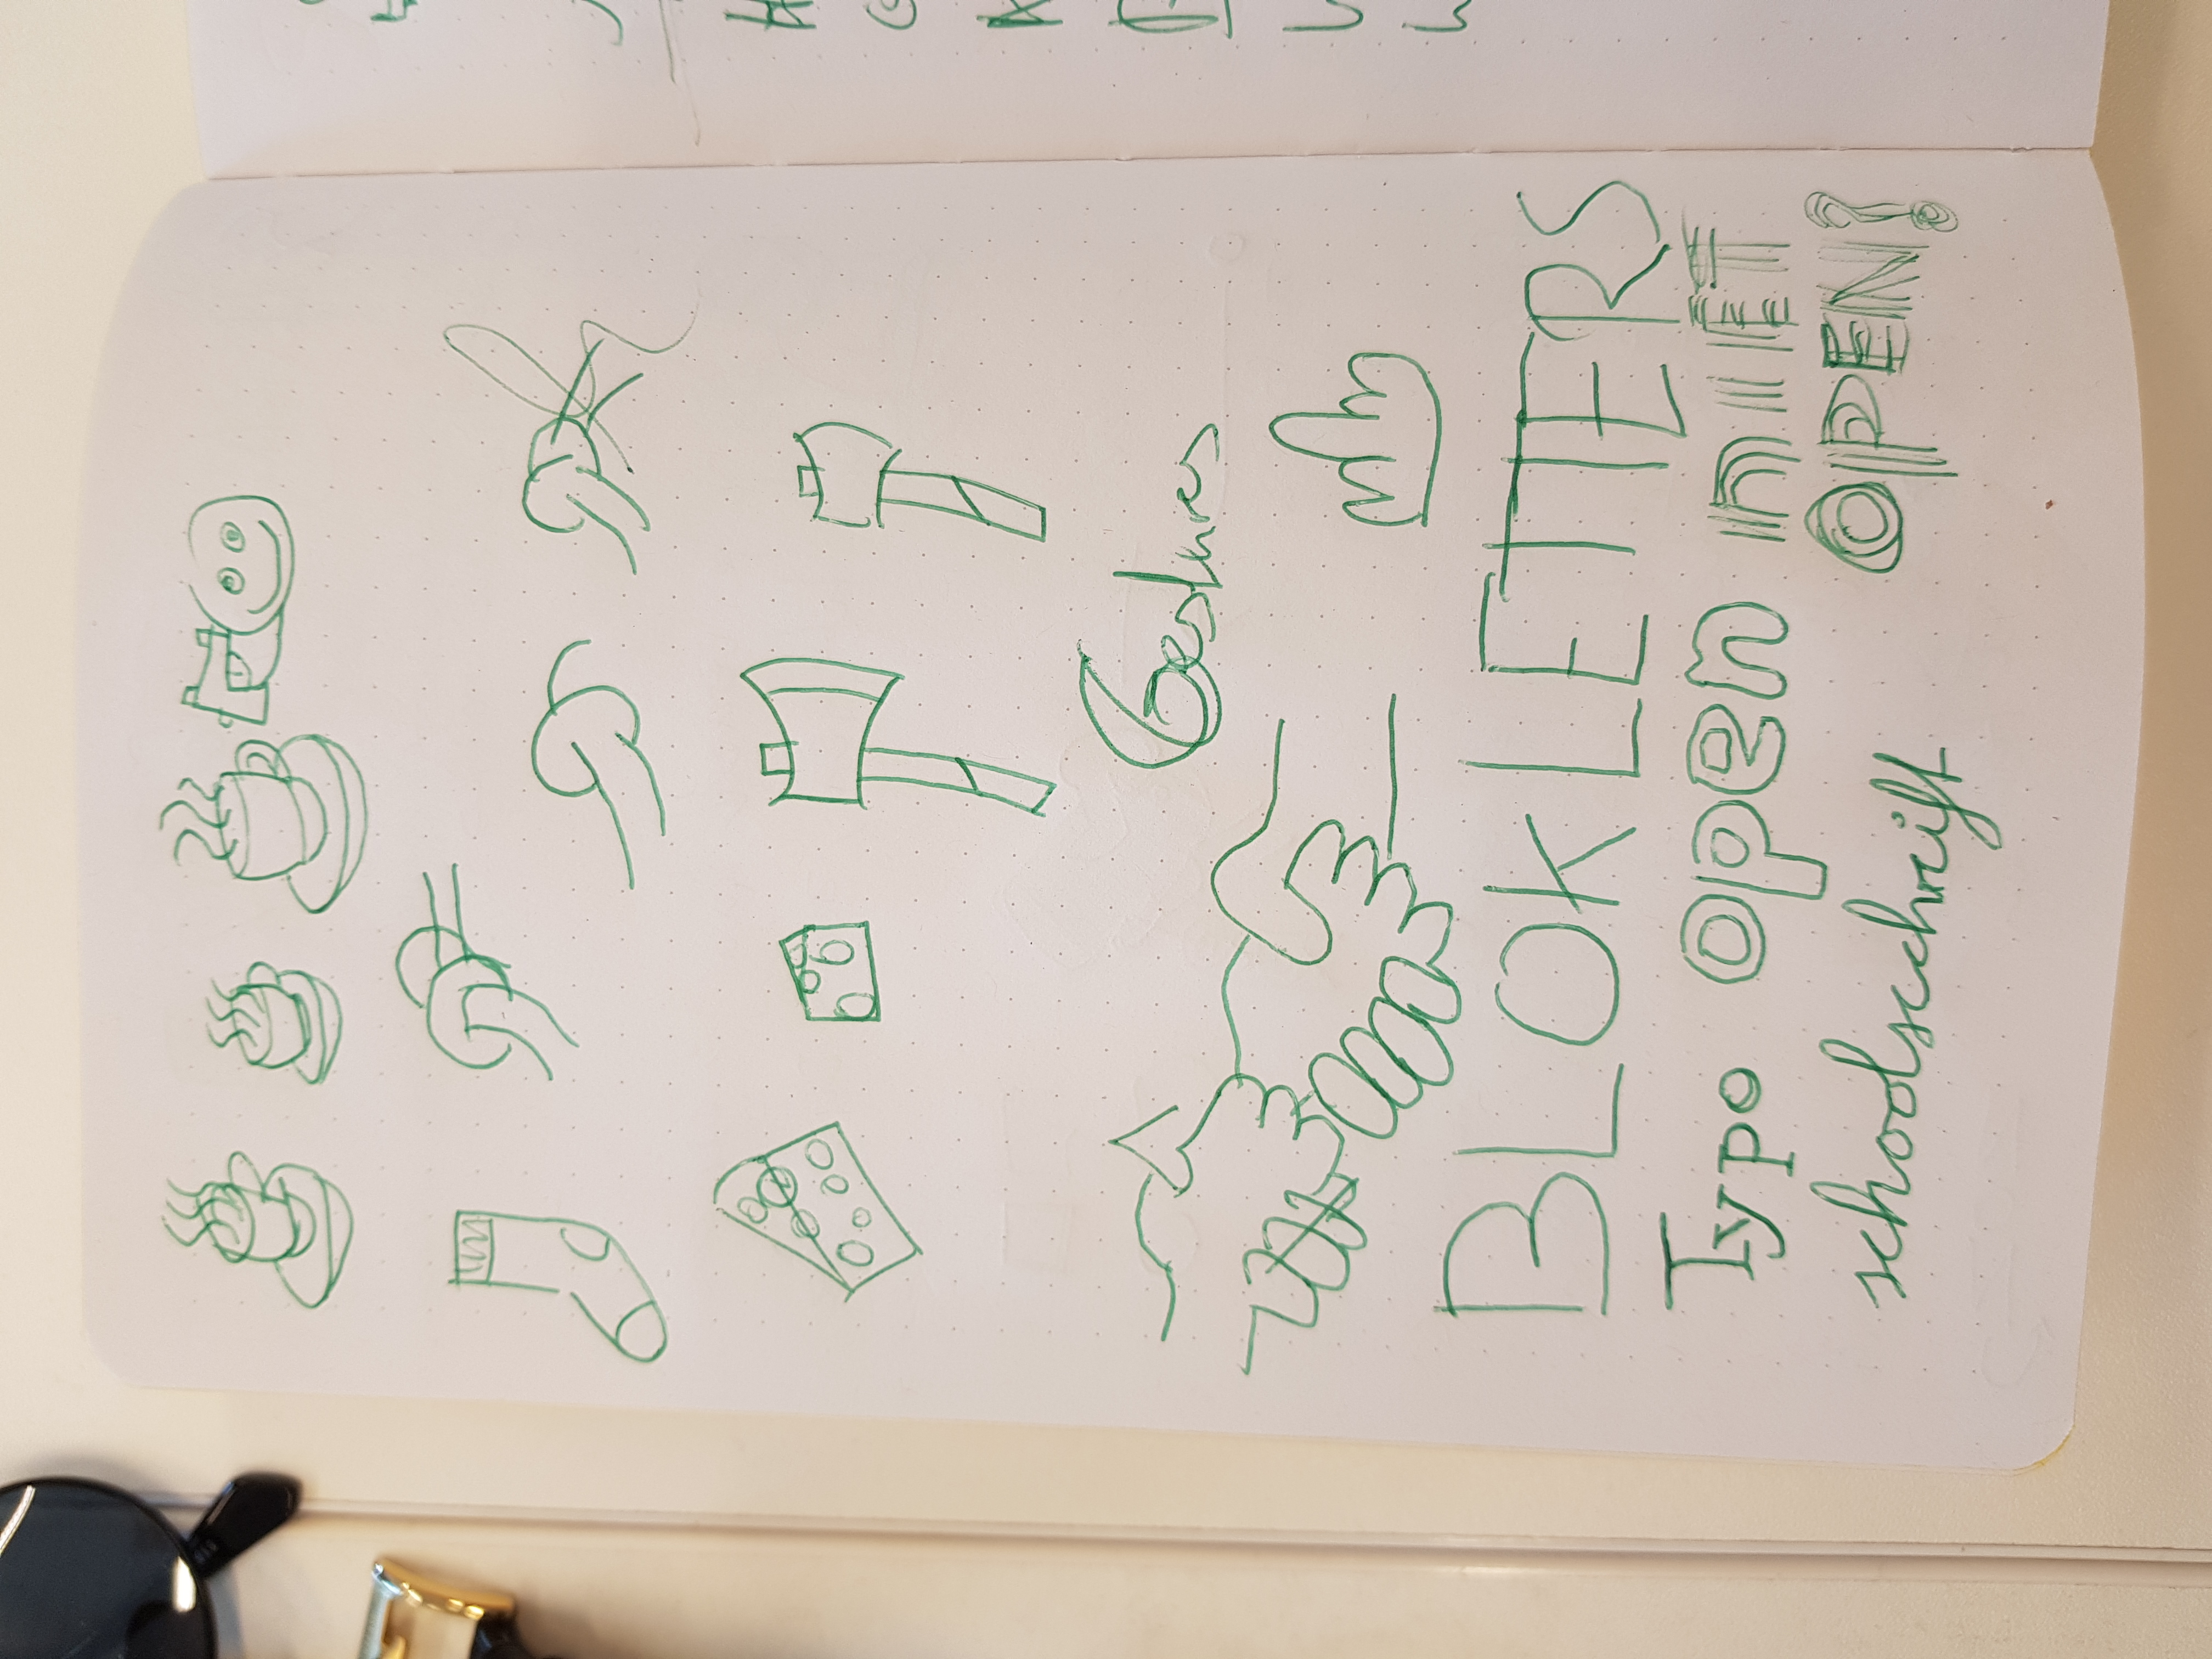 Gestures
BLOKLETTERS
Typo open nIET
schoolschrift OPEN?